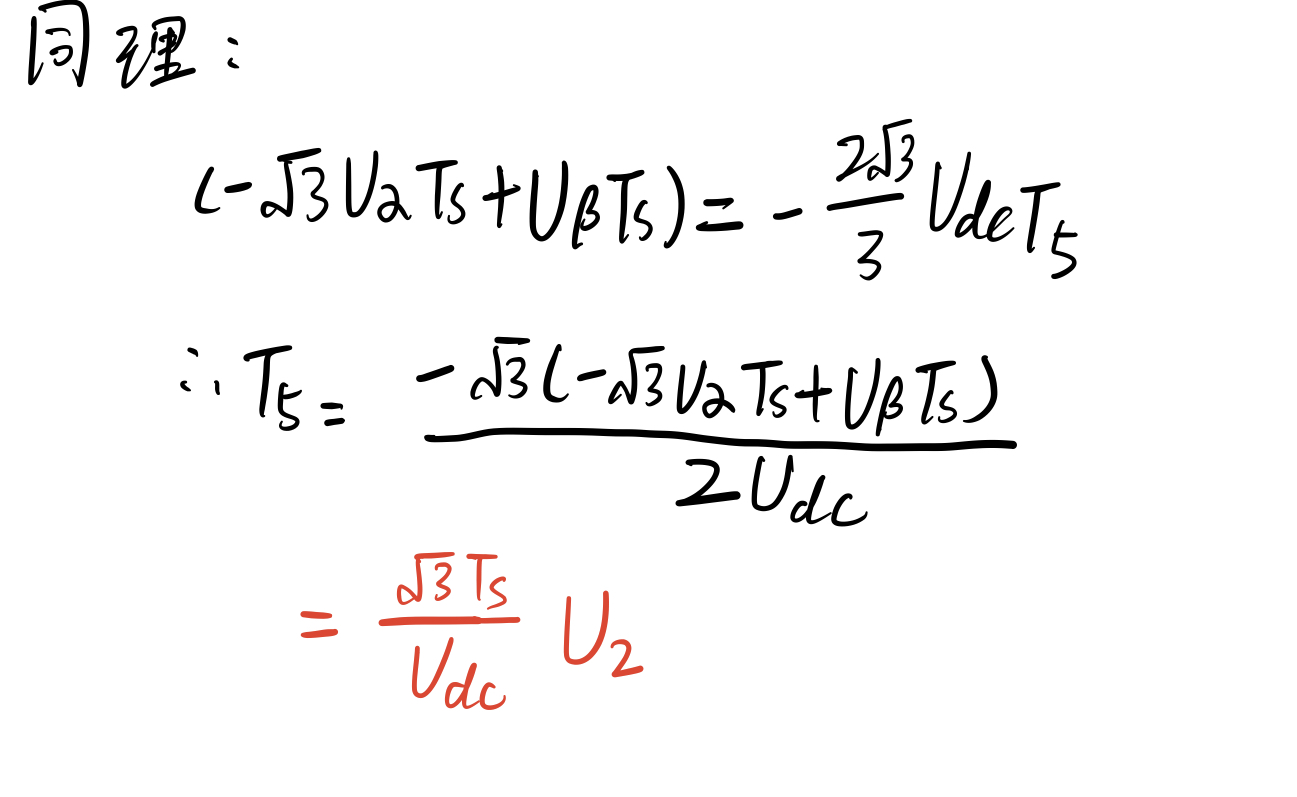 同理：
(-√3 Uα Ts + Uβ Ts) = - 2√3/3 Udc T5
∴ T5 = -√3(-√3 Uα Ts + Uβ Ts) / 2Udc
= √3 Ts / Udc U2